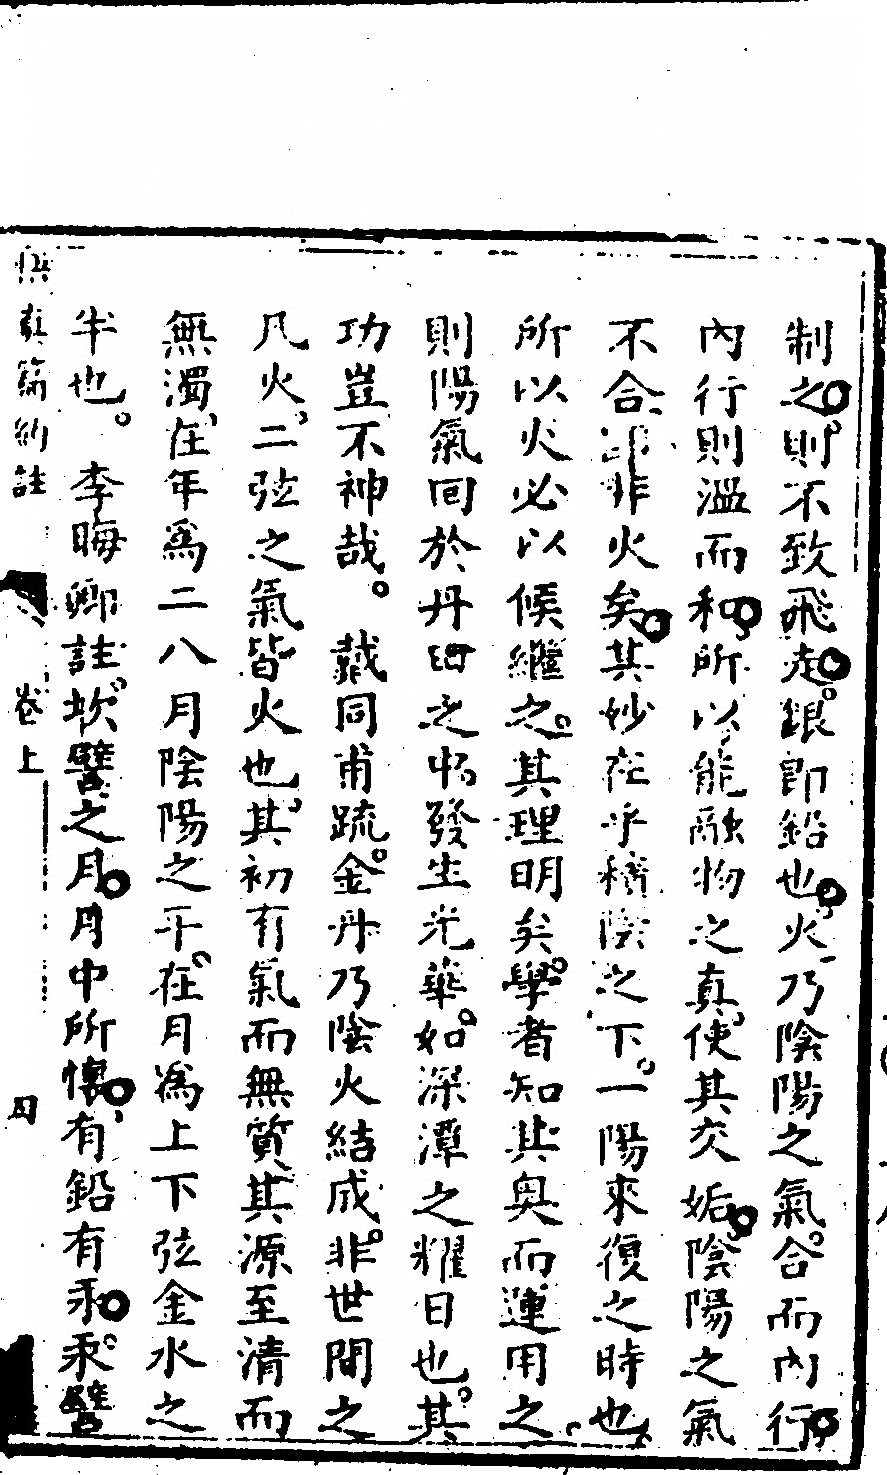 制之則不致飛走銀即鉛也火乃陰陽之氣合而內行
內行則溫而和所以能融物之真使其交姤陰陽之氣
不合卽非火矣其妙在乎積陰之下一陽來復之時也
所以火必以候繼之其理明矣學者知其奥而運用之
則陽氣回於丹田之中發生光華如深潭之耀日也其
功豈不神哉。戴同甫疏金丹乃陰火結成非世間之
凡火二弦之氣皆火也其初有氣而無質其源至清而
無濁在年爲二八月陰陽之平在月爲上下弦金水之
半也。李晦卿註坎譬之月月中所懷有鉛有汞汞譬
悟真篇約註 卷上 四